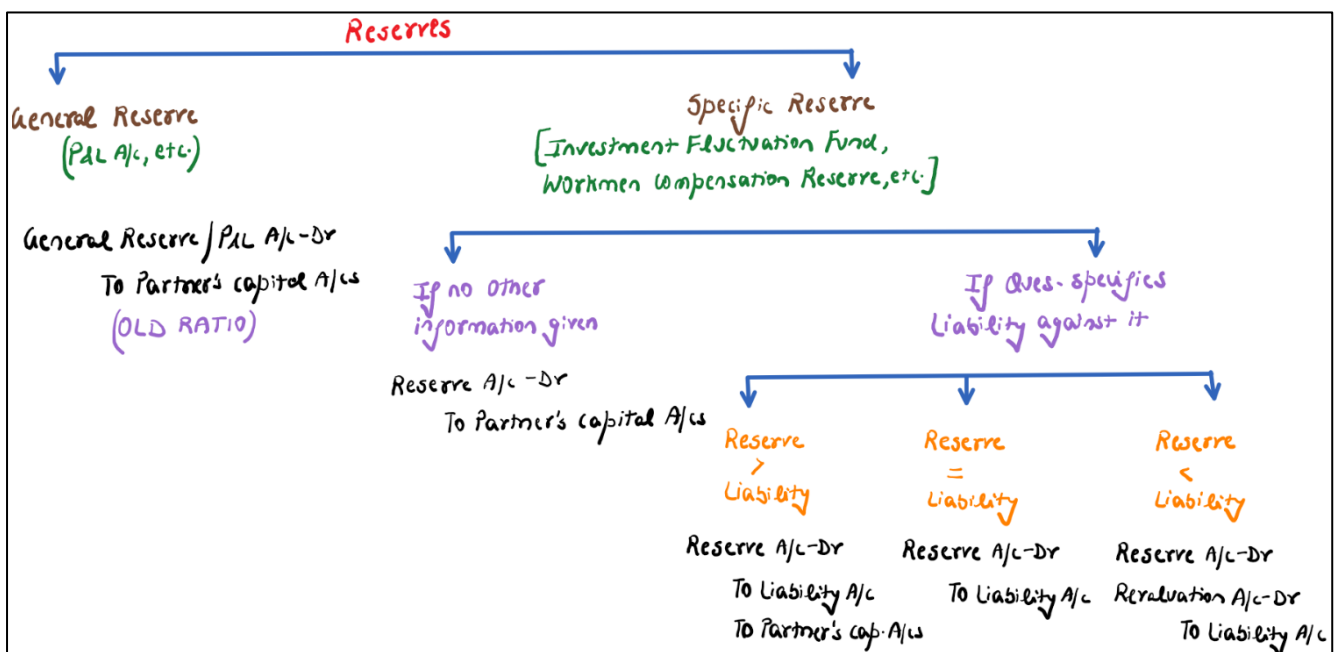 Reserves
General Reserve
(P&L A/c, etc.)
General Reserve/P&L A/c-Dr
To Partner's capital A/cs
(OLD RATIO)
Specific Reserve
[Investment Fluctuation Fund,
Workmen Compensation Reserve, etc.]
If no other
information given
Reserve A/c-Dr
To Partner's capital A/cs
If Ques. specifies
Liability against it
Reserve
>
Liability
Reserve A/c-Dr
To Liability A/c
To Partner's cap. A/cs
Reserve
=
Liability
Reserve A/c-Dr
To Liability A/c
Reserve
<
Liability
Reserve A/c-Dr
Revaluation A/c-Dr
To Liability A/c